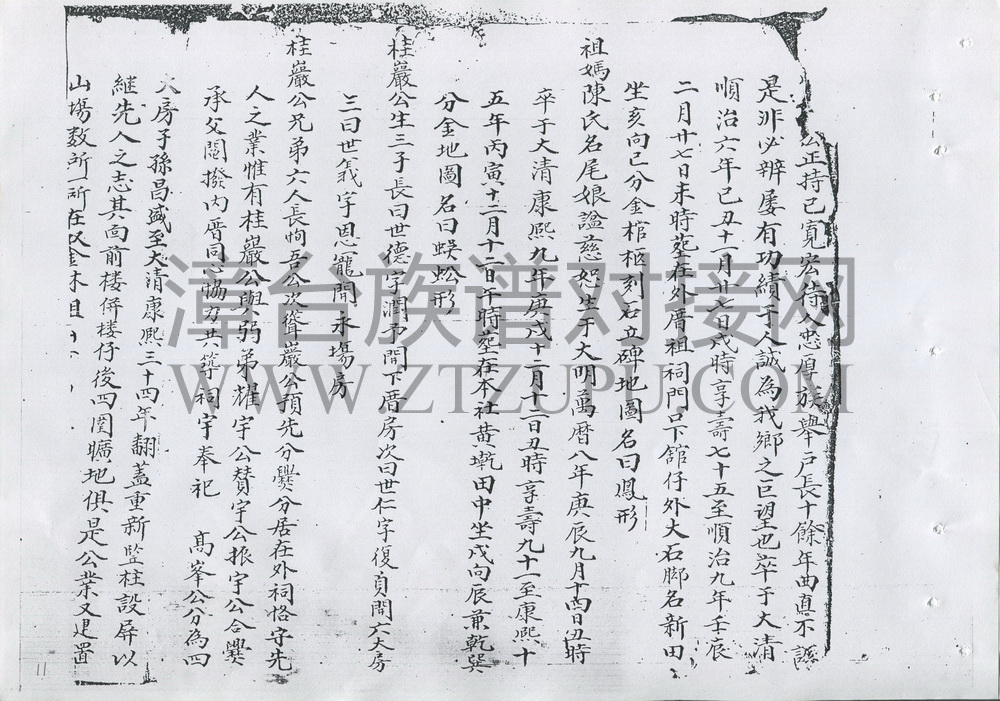 公正持己寬宏待人忠厚族舉戶長十餘年曲直不誣
是非必辨屢有功績于人誠為我鄉之巨望也卒于大清
順治六年己丑十一月廿七日戌時享壽七十五至順治九年壬辰
二月廿七日未時塟在外厝祖祠門口下館仔外大石脚名新田
坐亥向巳分金棺柩刻石立碑地圖名曰鳳形
祖媽陳氏名尾娘諡慈恕生于大明萬曆八年庚辰九月十四日丑時
卒于大清康熙九年庚戌十二月十二日丑時享壽九十一至康熙十
五年丙寅十二月十二日午時塟在本社黄墘田中坐戌向辰兼乾巽
分金地圖名曰蜈蚣形
桂巖公生三子長曰世德字潤予開下厝房次曰世仁字復貞開六大房
三曰世義字思寵開永場房
桂巖公兄弟六人長恂吾公次聳巖公預先分爨分居在外祠恪守先
人之業惟有桂巖公與弱弟耀宇公賛宇公振宇公合爨
承父鬮撥内厝同心協力共築祠宇奉祀 高峯公分為四
大房子孫昌盛至大清康熙三十四年翻蓋重新監柱設屏以
継先人之志其向前楼併楼仔後四圍曠地俱是公業又建置
山場数所一所在
漳台族谱对接网
WWW.ZTZUPU.COM
11